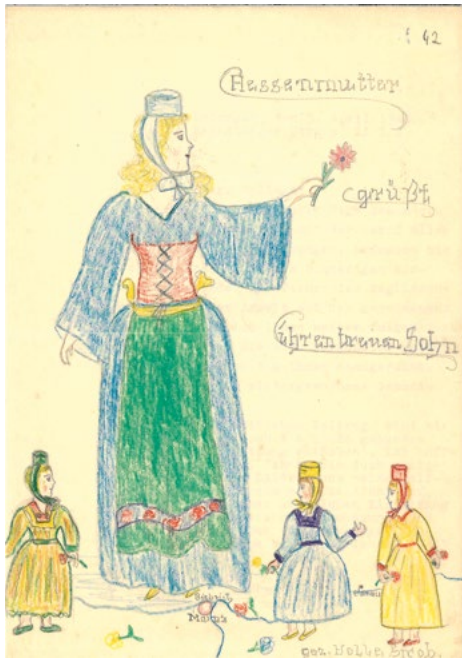 42
Hessenmutter
grüßt
Ihren treuen Sohn
Mainz
gez. Holle